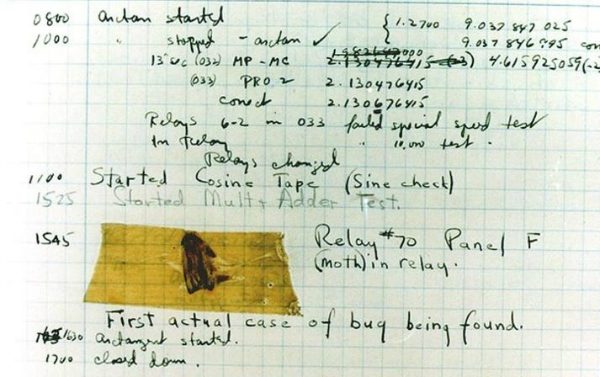 0800 arctan started { 1.2700 9.037 847 025
1000 " stopped - arctan ✓ 9.037 846 795 con
13"uc (032) MP - MC 2.130476415 4.615925059(-2
(033) PRO 2 2.130476415
conect 2.130676415
Relays 6-2 in 033 failed special speed test
In Relay " 10,000 test .
Relays changed
1100 Started Cosine Tape (Sine check)
1525 Started Mult+ Adder Test.
1545 Relay #70 Panel F
(moth) in relay.
First actual case of bug being found.
1630 arctangent started.
1700 closed down.